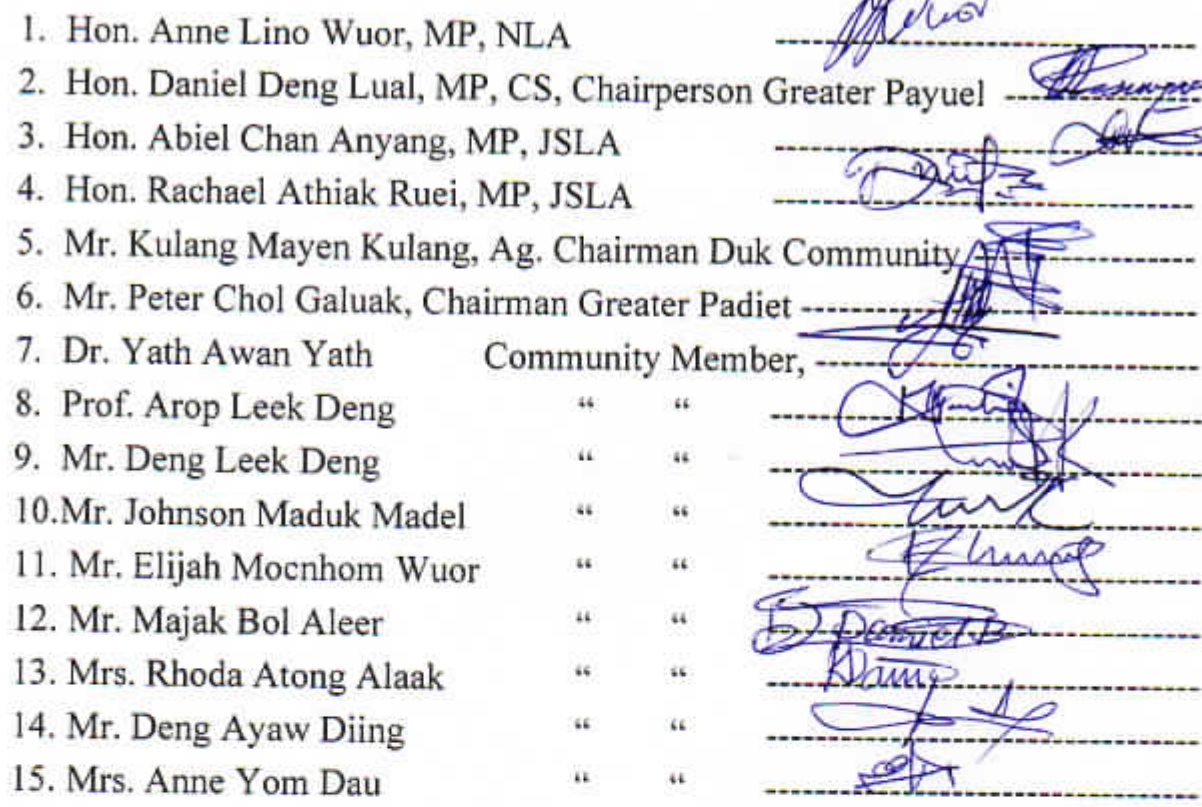 1. Hon. Anne Lino Wuor, MP, NLA
2. Hon. Daniel Deng Lual, MP, CS, Chairperson Greater Payuel
3. Hon. Abiel Chan Anyang, MP, JSLA
4. Hon. Rachael Athiak Ruei, MP, JSLA
5. Mr. Kulang Mayen Kulang, Ag. Chairman Duk Community
6. Mr. Peter Chol Galuak, Chairman Greater Padiet
7. Dr. Yath Awan Yath Community Member,
8. Prof. Arop Leek Deng “ “
9. Mr. Deng Leek Deng “ “
10.Mr. Johnson Maduk Madel “ “
11. Mr. Elijah Mocnhom Wuor “ “
12. Mr. Majak Bol Aleer “ “
13. Mrs. Rhoda Atong Alaak “ “
14. Mr. Deng Ayaw Diing “ “
15. Mrs. Anne Yom Dau “ “